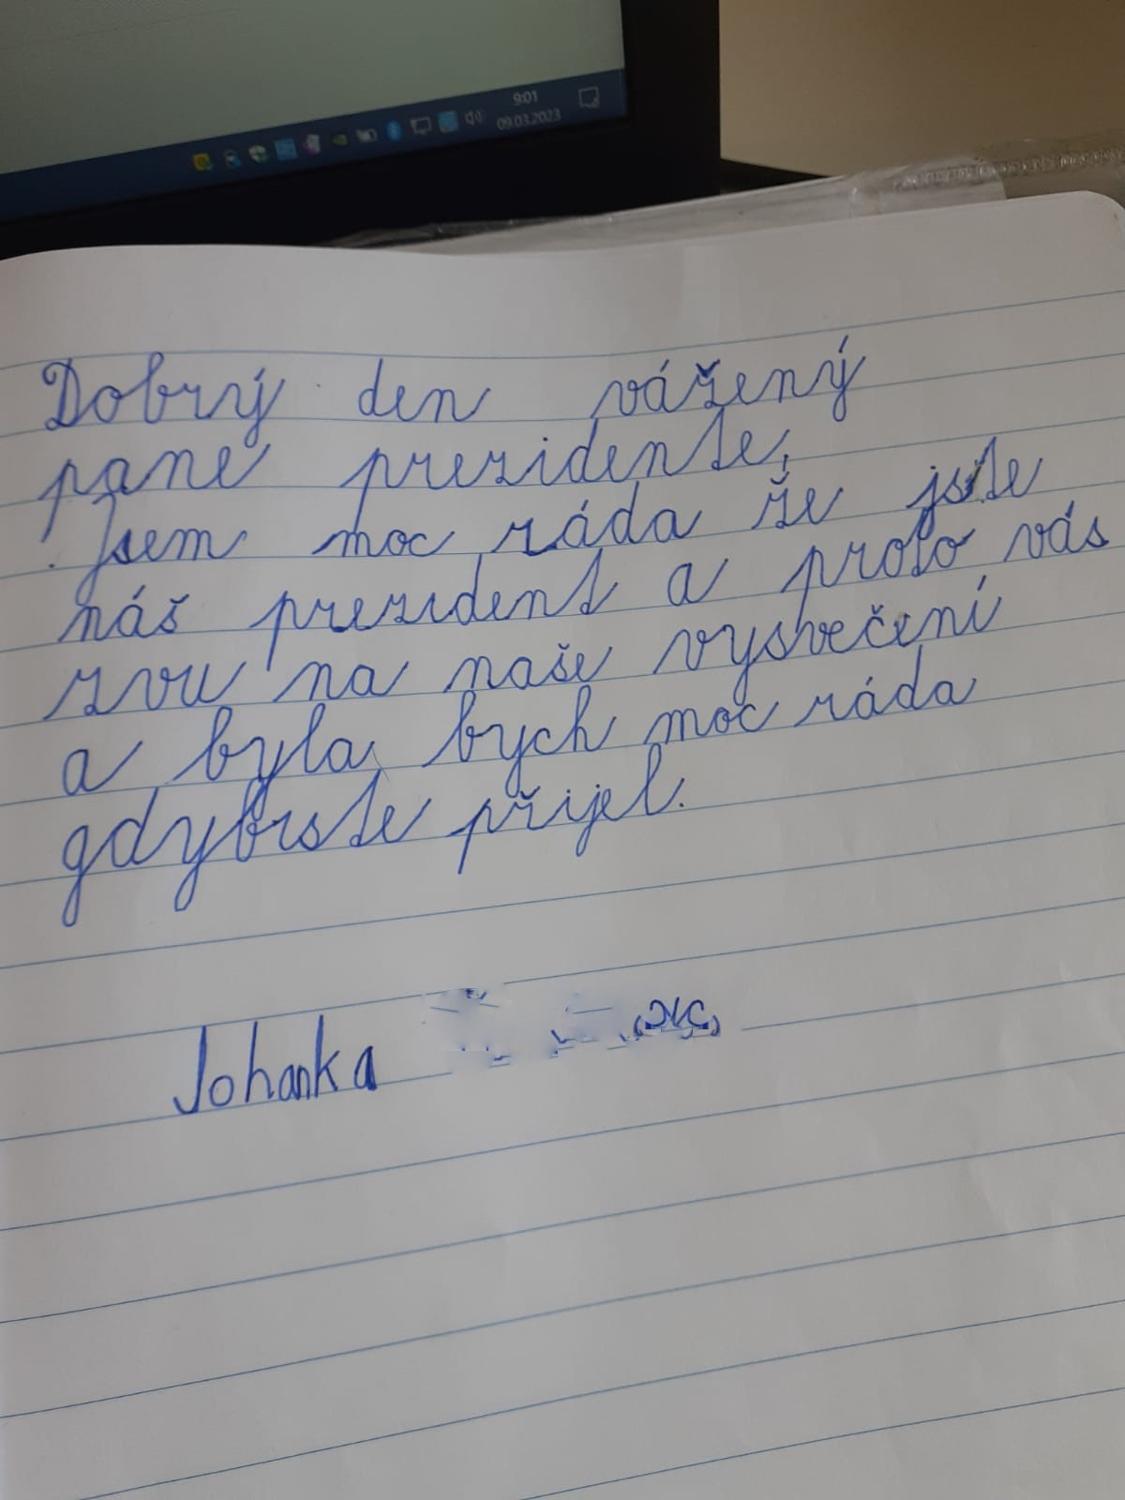 9:01
09.03.2023
Dobrý den vážený
pane prezidente,
Jsem moc ráda že jste
náš prezident a proto vás
zvu na naše vysvečení
a byla bych moc ráda
gdybyste přijel.
Johanka